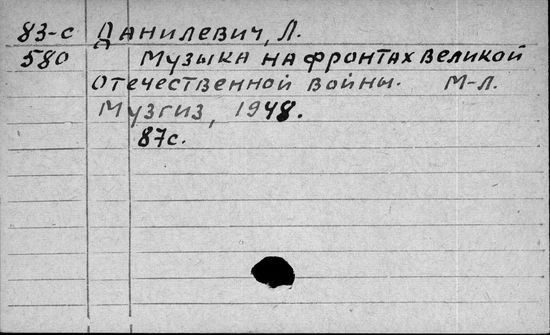 83-с Данилевич, Л.
580 Музыка на фронтах Великой
Отечественной войны. М-Л.
Музгиз, 1948.
87с.